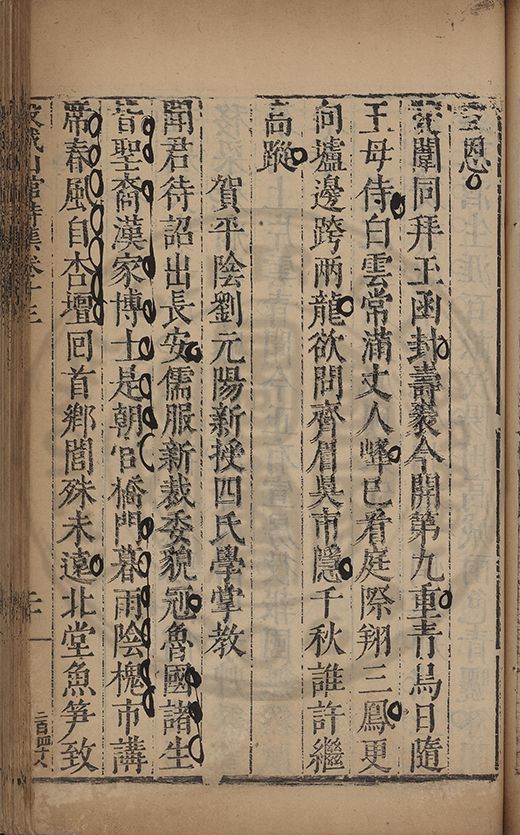 恩
闈同拜玉函封壽袠今開第九重青鳥日隨
王母侍白雲常滿丈人峰已看庭際翔三鳳更
向壚邊跨兩龍欲問齊眉吳市隱千秋誰許繼
高蹤
賀平陰劉元陽新授四氏學掌教
聞君待詔出長安儒服新裁委貌冠魯國諸生
皆聖裔漢家博士是朝官橋門暮雨陰槐市講
席春風自杏壇回首鄉閭殊未遠北堂魚笋致
穀城山館詩集卷十三
二百四十八